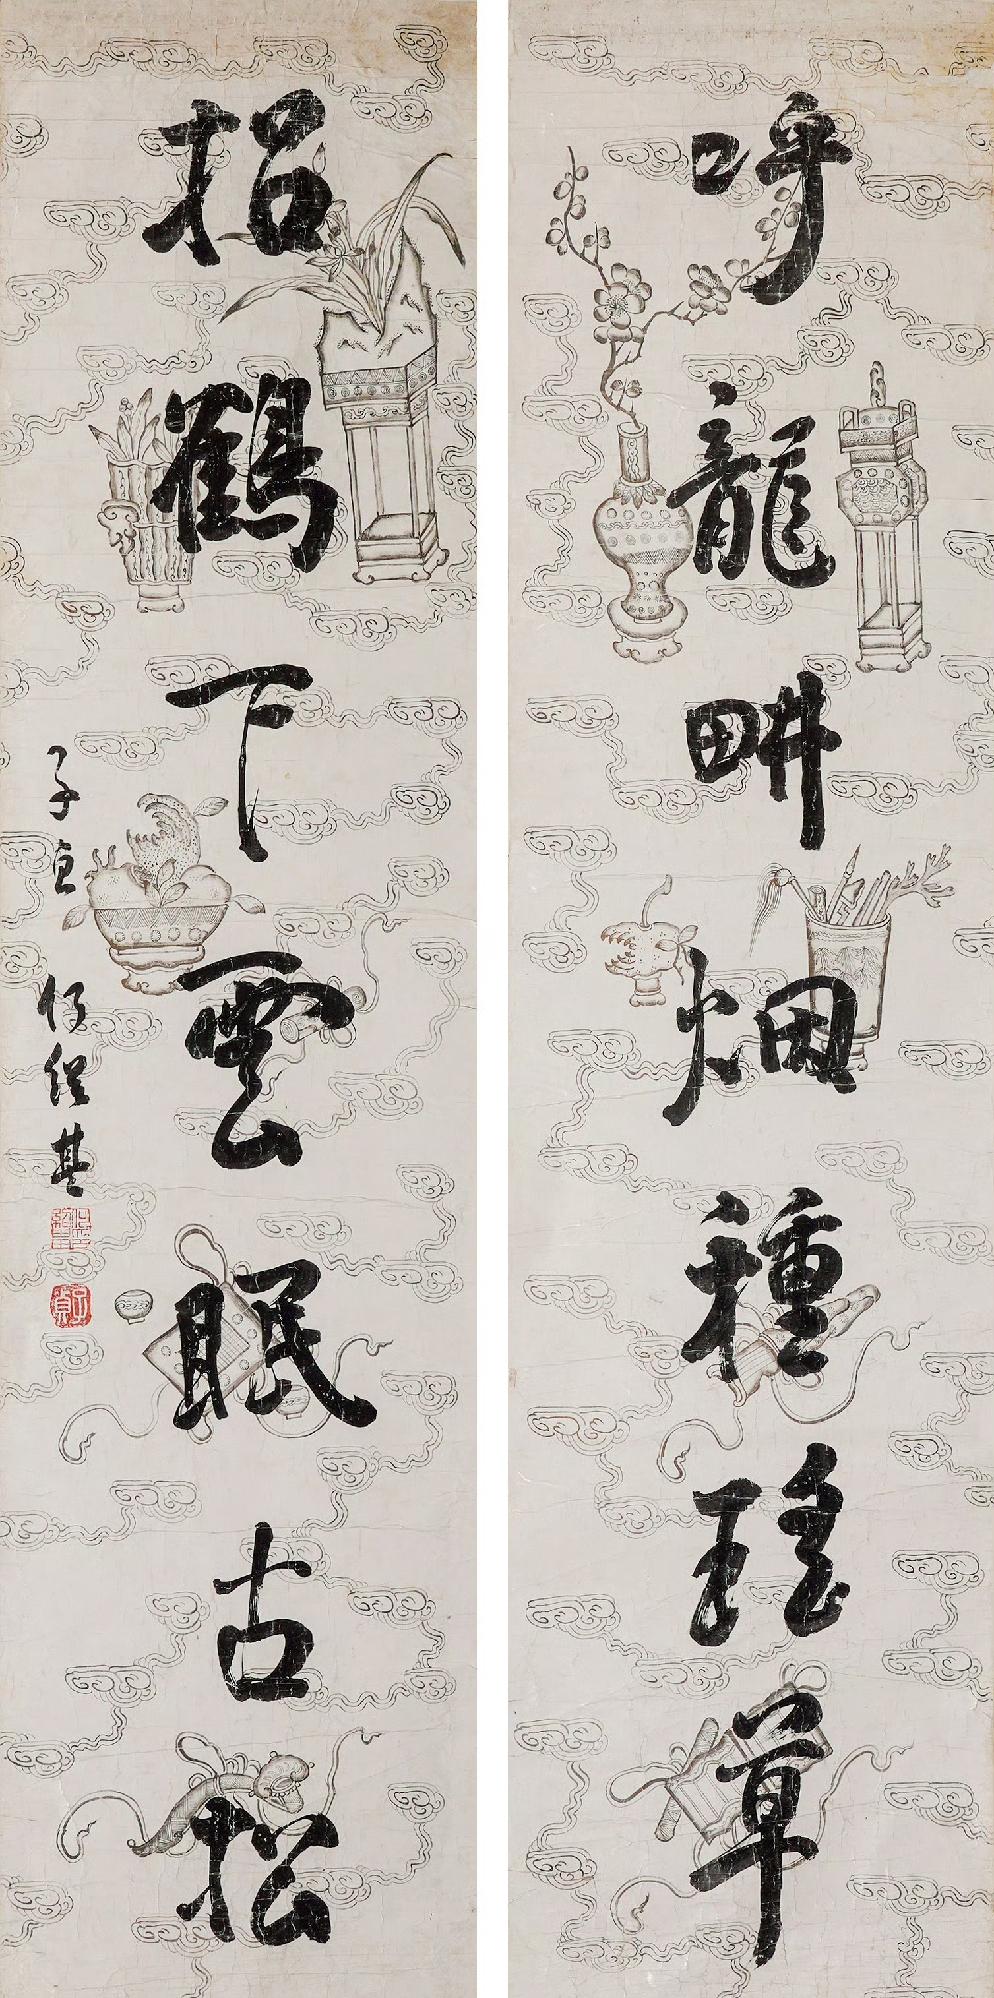 呼龍畊烟種瑤草
招鶴下雲眠古松
子貞何紹基